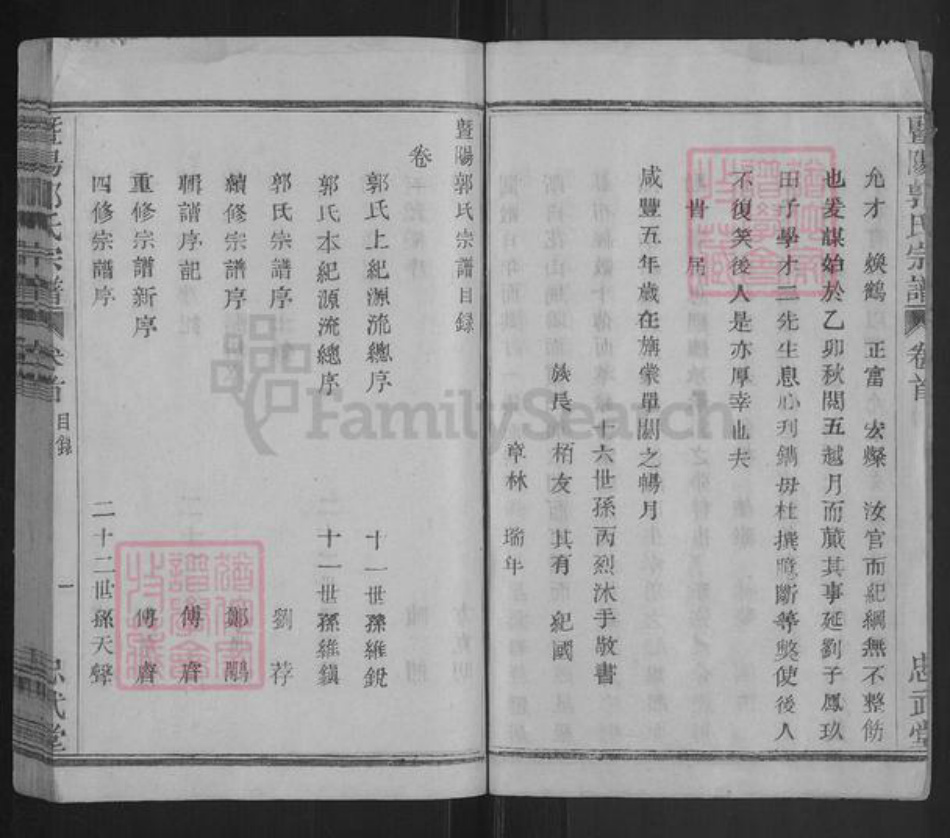 暨陽郭氏宗譜 卷首 忠武堂
允才 煥鶴 正富 宏燦 汝官而紀綱無不整飭
也爰謀始於乙卯秋閱五越月而蕆其事延劉子鳳玖
田子學才二先生息心刋鐫毋杜撰臆斷等獘使後人
不復笑後人是亦厚幸也夫
咸豐五年歲在旃蒙單閼之暢月
十六世孫丙烈沐手敬書
族長 栢友 其有 紀國
章林 瑞年
暨陽郭氏宗譜目錄
卷首
郭氏上紀源流總序 十一世孫維銳
郭氏本紀源流總序 十一世孫維鎮
郭氏宗譜序 劉荐
續修宗譜序 鄭鵬
輯譜序記 傅齊
重修宗譜新序 傅齊
四修宗譜序 二十二世孫天聲
暨陽郭氏宗譜 卷首 目錄 一 忠武堂
FamilySearch